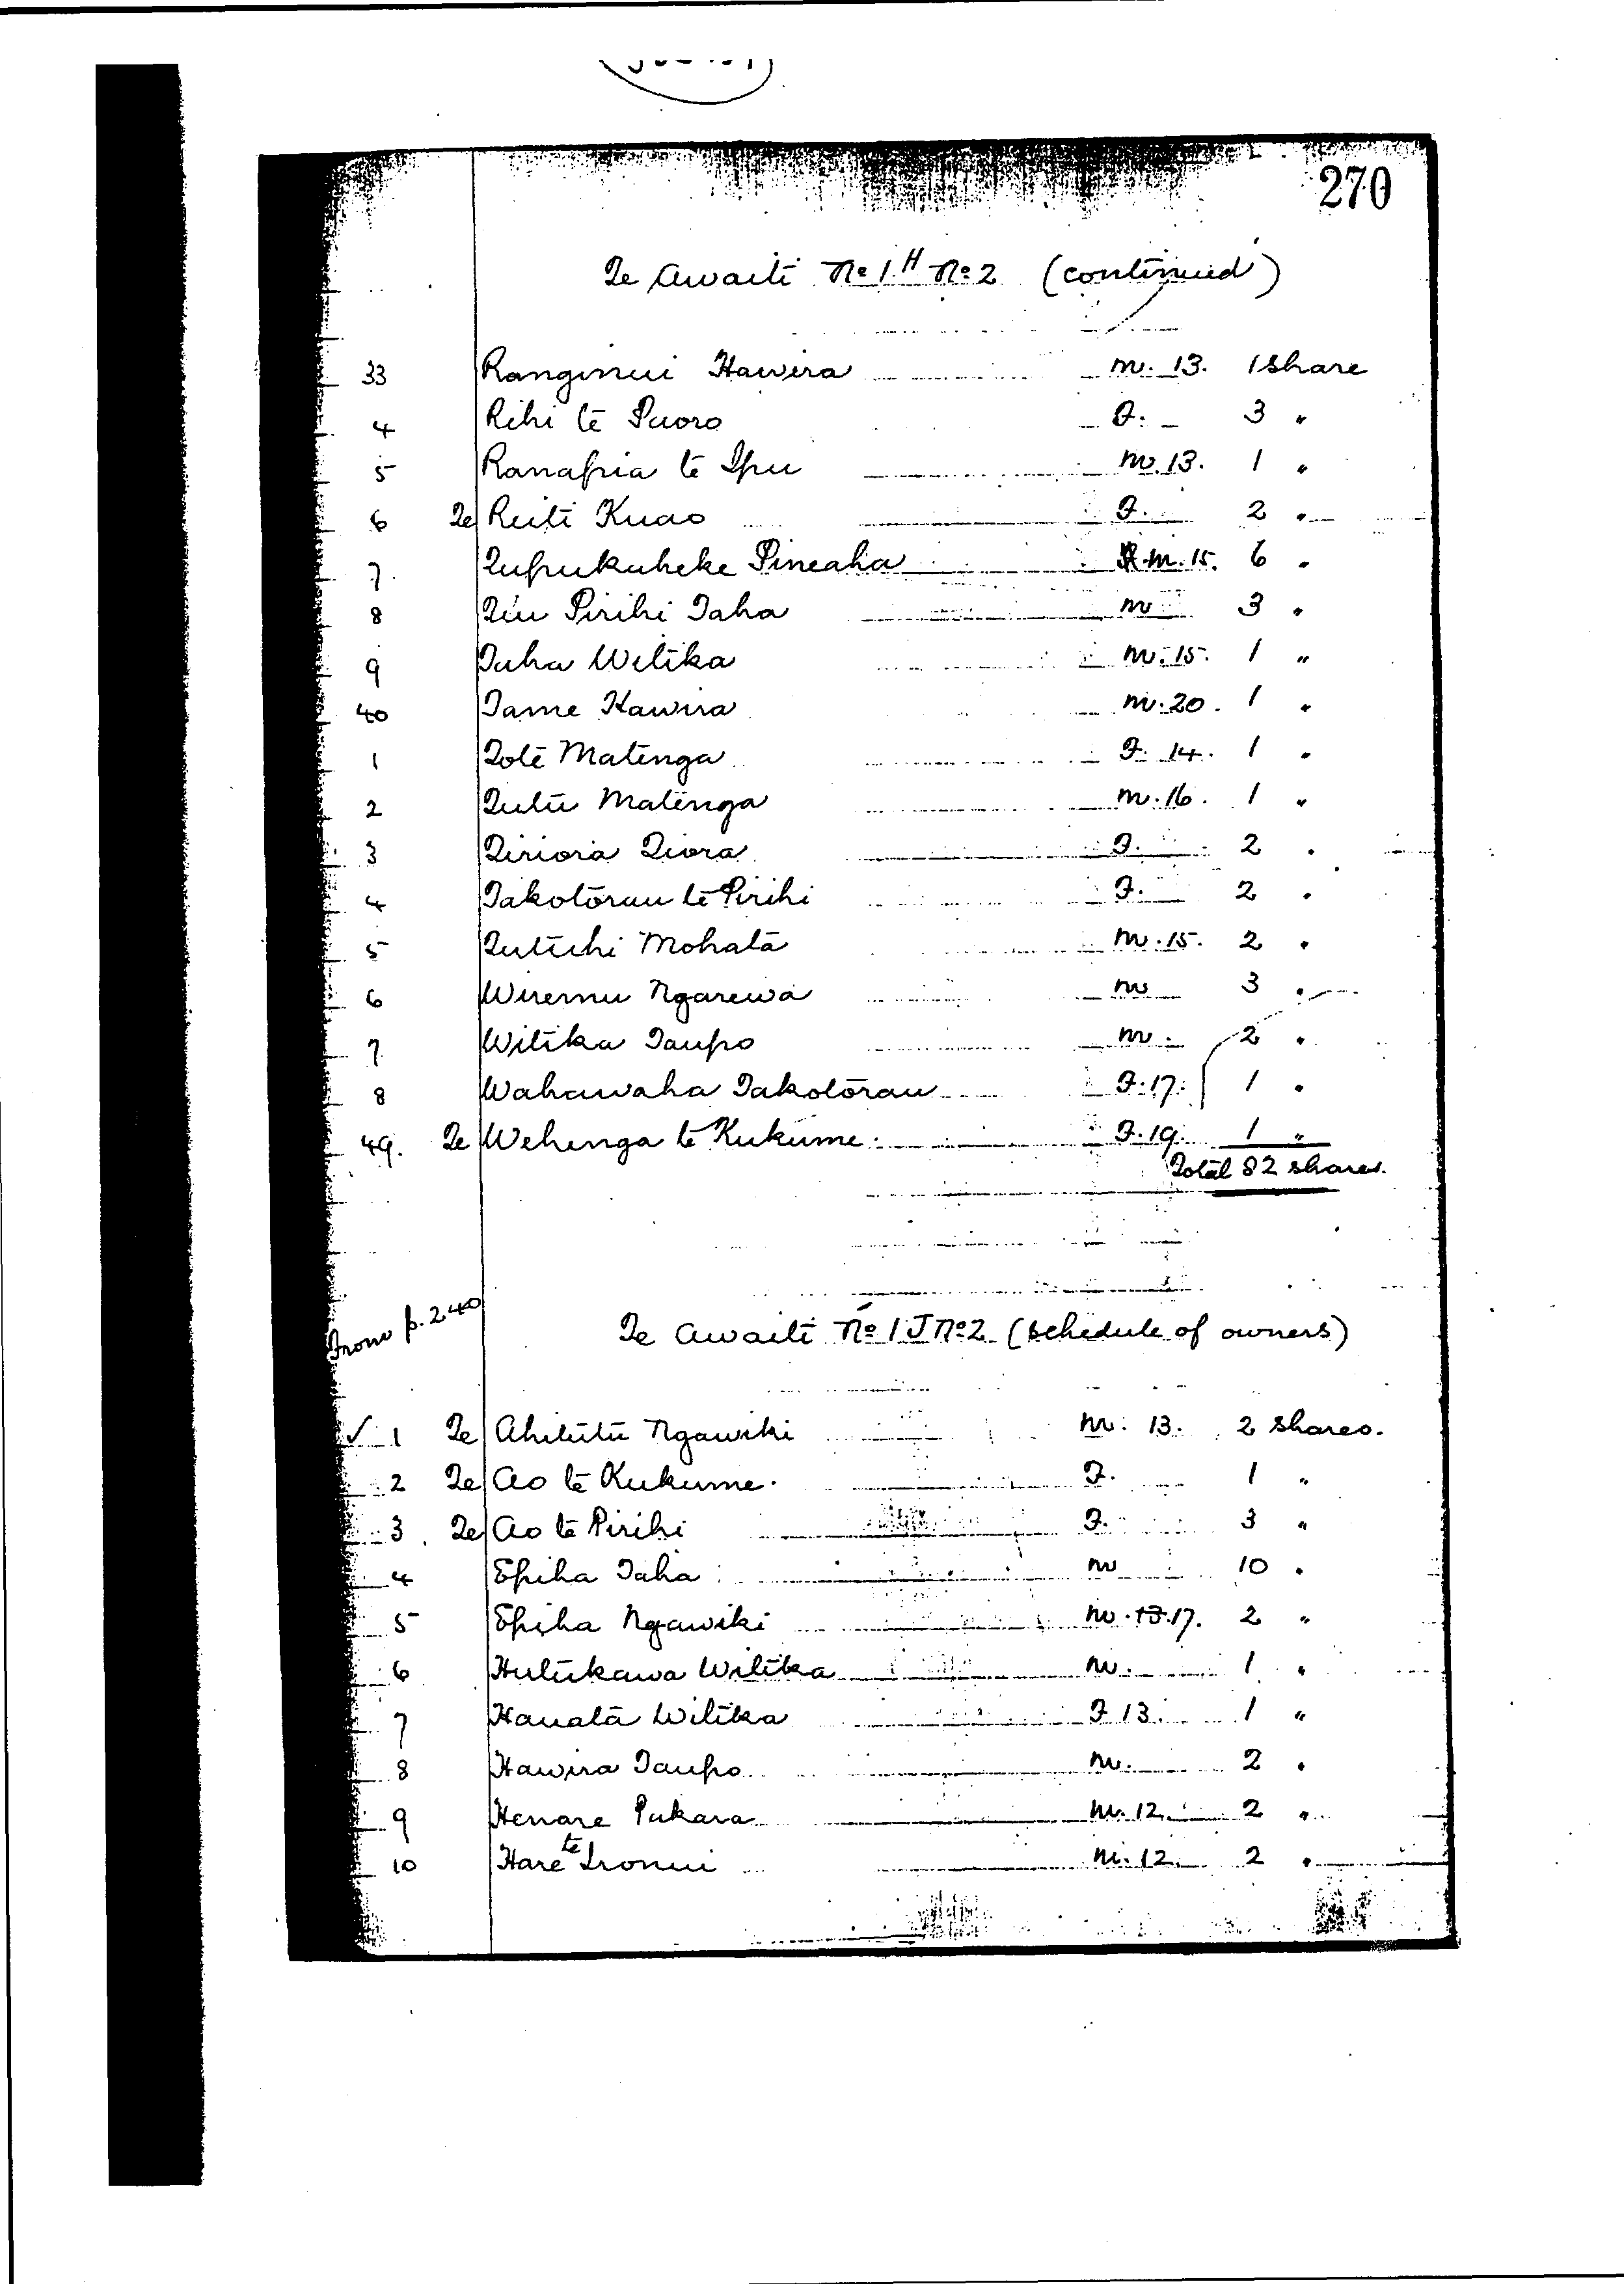 270
Te Awaiti No 1 H No 2 (continued)
33 Ranginui Hawira m. 13. 1 share
4 Rihi te Puoro F. 3 "
5 Ranapia te Ipu m. 13. 1 "
6 Te Reiti Kuao F. 2 "
7. Tupukaheke Pineaha m. 15. 6 "
8 Tiu Pirihi Taha m 3 "
9 Taha Witika m. 15. 1 "
40 Tame Hawira m. 20. 1 "
1 Tote Matenga F. 14. 1 "
2 Tutu Matenga m. 16. 1 "
3 Tiriora Tiora F. 2 "
4 Takotorau te Pirihi F. 2 "
5 Tutuhi Mohata m. 15. 2 "
6 Wiremu Ngarewa m 3 "
7 Witika Taupo m. 2 "
8 Wahawaha Takotorau F. 17. 1 "
49. Te Wehenga te Kukume. F. 19. 1 "
Total 82 shares.
From p. 240
Te Awaiti No 1 J No 2 (schedule of owners)
✓ 1 Te Ahitutu Ngawiki m. 13. 2 shares.
2 Te Ao te Kukume. F. 1 "
3. Te Ao te Pirihi F. 3 "
4 Epiha Taha m 10 "
5 Epiha Ngawiki m. 13. 17. 2 "
6 Hutukawa Witika m. 1 "
7 Hauata Witika F 13. 1 "
8 Hawira Taupo m. 2 "
9 Henare Pukara m. 12. 2 "
10 Hare te Ironui m. 12. 2 "